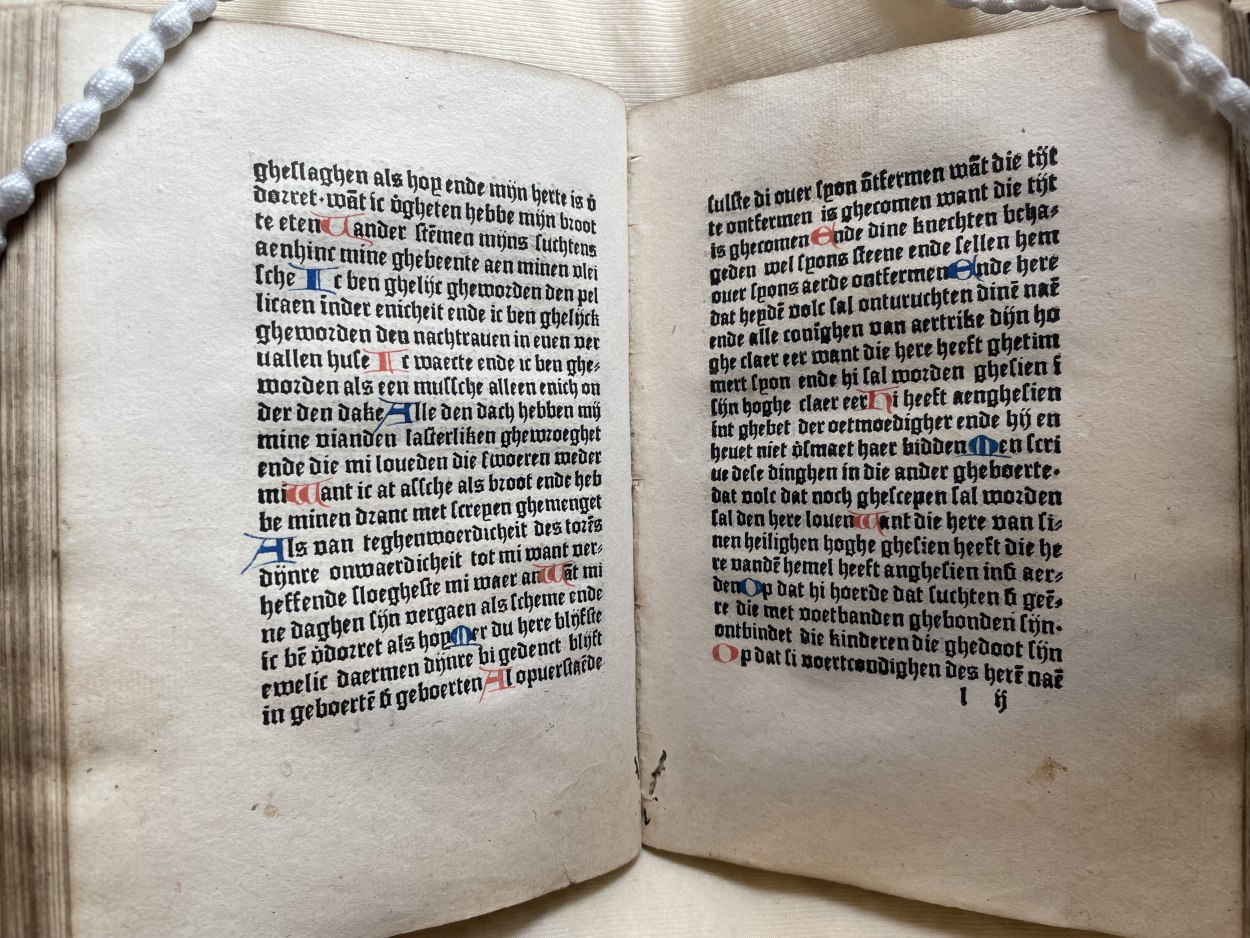 gheslaghen als hoy ende mijn herte is v̄
dorret·wāt ic v̄gheten hebbe mijn broot
te eten Uander stēmen mijns suchtens
aenhinc mine ghebeente aen minen vlei
sche Ic ben ghelijc gheworden den pel
licaen īnder enicheit ende ic ben ghelijck
gheworden den nachtrauen in enen ver
uallen huse Ic waecte ende ic ben ghe⸗
worden als een mussche alleen enich on
der den dake Alle den dach hebben mij
mine vianden lasterliken ghewroeghet
ende die mi loueden die swoeren weder
mi Want ic at assche als broot ende heb
be minen dranc met screyen ghemenget
Als van teghenwoerdicheit des torēs
dijnre onwaerdicheit tot mi want ver⸗
heffende sloegheste mi waer an Wāt mi
ne daghen sijn vergaen als scheme ende
ic bē v̄dorret als hoy Mer du here blijfste
ewelic daermen dijnre bi gedenct blijft
in geboertē ū geboerten Al opuerstaēde
sulste di ouer syon ōtfermen wāt die tijt
te ontfermen is ghecomen want die tijt
is ghecomen Ende dine knechten bcha⸗
geden wel syons steene ende sellen hem
ouer syons aerde ontfermen Ende here
dat heydē volc sal onturuchten dinē naē
ende alle conīghen van aertrike dijn ho
ghe claer eer want die here heeft ghetim
mert syon ende hi sal worden ghesien ī
sijn hoghe claer eer Hi heeft aenghesien
int ghebet der oetmoedigher ende hij en
heuet niet v̄smaet haer bidden Men scri
ue dese dinghen in die ander gheboerte·
dat volc dat noch ghescepen sal worden
sal den here louen Want die here van si⸗
nen heilighen hoghe ghesien heeft die he
re vandē hemel heeft anghesien inđ aer⸗
den Op dat hi hoerde dat suchten đ geē⸗
re die met voetbanden ghebonden sijn·
ontbindet die kinderen die ghedoot sijn
Op dat si voertcondighen des herē naē
l ij